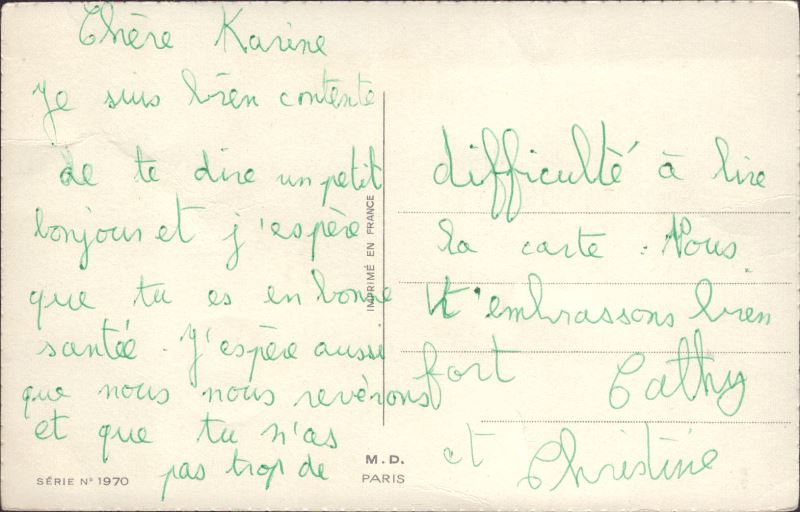 Chère Karine
Je suis bien contente
de te dire un petit
bonjour et j'espère
que tu es en bonne
santée. J'espère aussi
que nous nous revérons
et que tu n'as
pas trop de
difficulté à lire
la carte. Nous
t'embrassons bien
fort Cathy
et Christine
IMPRIMÉ EN FRANCE
M.D.
PARIS
SÉRIE N° 1970